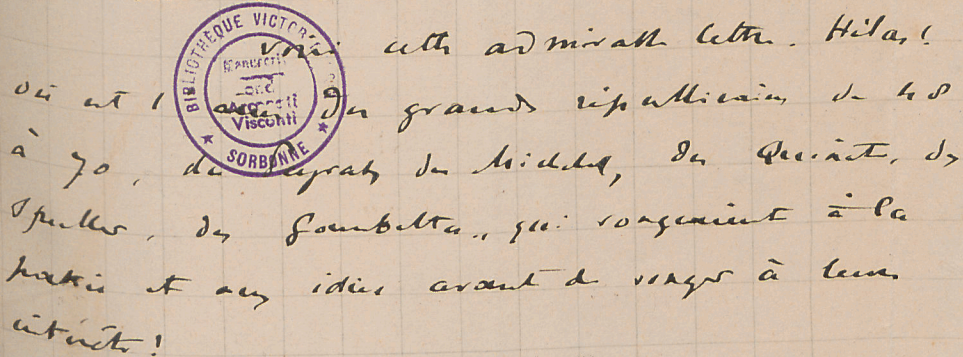 BIBLIOTHÈQUE VICTOR
Manuscrits
Fond
Arconati
Visconti
★ SORBONNE ★
voici cette admirable lettre. Hélas!
où est l' des grands républicains de 48
à 70, des Peyrat, des Michelet, des Quinet, des
Spuller, des Gambetta, qui songeaient à la
patrie et aux idées avant de songer à leurs
intérêts!